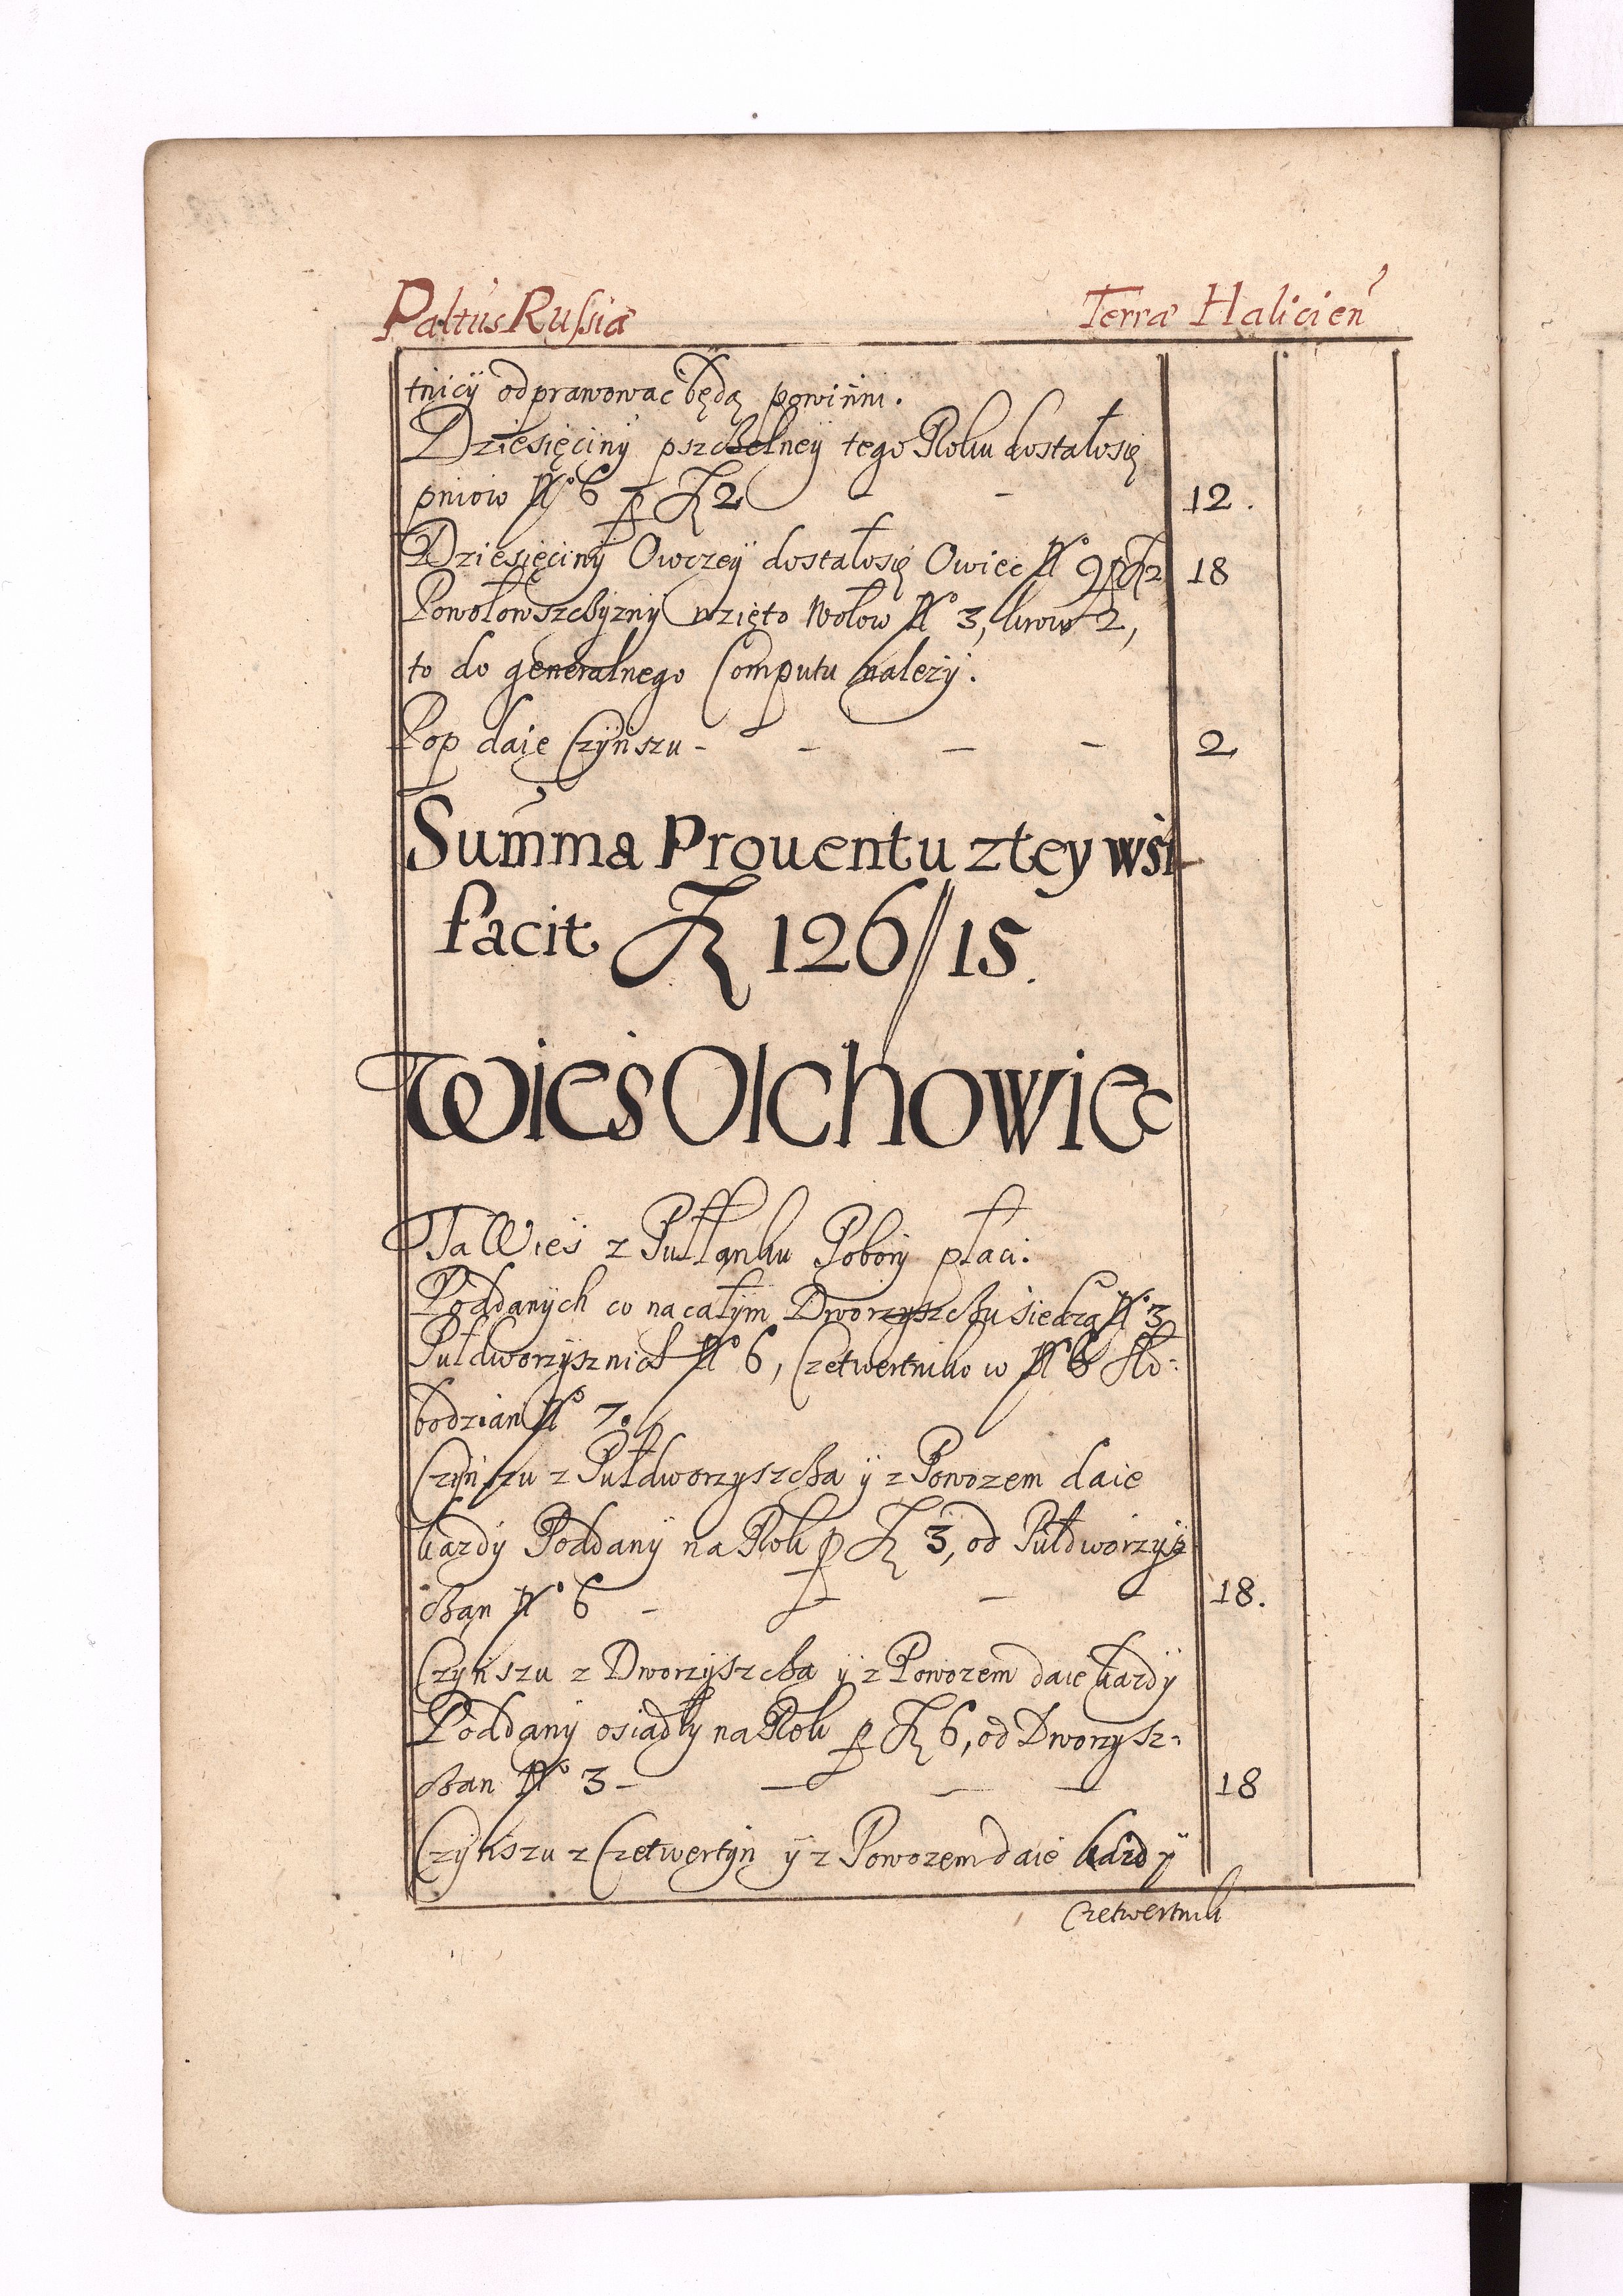 Paltus Russiæ Terræ Halicien
tnicÿ odprawować będą powinni.
Dziesięciny pszchelneÿ tego Roku dostałosię
pniow No 6 p fl 2 - - 12.
Dziesięciny Owczeÿ dostałosię Owiec No 9 p fl 2 18
Powołowszchyzny wzięto Wołow No 3, krow 2,
to do generalnego Computu należÿ.
Pop daie Czynszu - - - - 2
Summa Prouentu z tey wśi
facit fl 126//15.
Wieś Olchowiec
Ta Wieś z Pułłanku Pobory płaci.
Poddanÿch co na całym Dworzyszchu siedzą No 3
Pułdworzysznich No 6, Czetwertnikow No 6 Sło-
bodzian No 7.
Czynszu z Pułdworzyszcha ÿ z Powozem daie
każdy Poddanÿ na Rok p fl 3, od Pułdworzysz
chan No 6 - - - 18.
Czynszu z Dworzyszcha ÿ z Powozem daie każdÿ
Poddany osiadły na Rok p fl 6, od Dworzysz-
chan No 3 - - - - 18
Czynszu z Czetwertyn ÿ z Powozem daie każdÿ
Czetwertnik